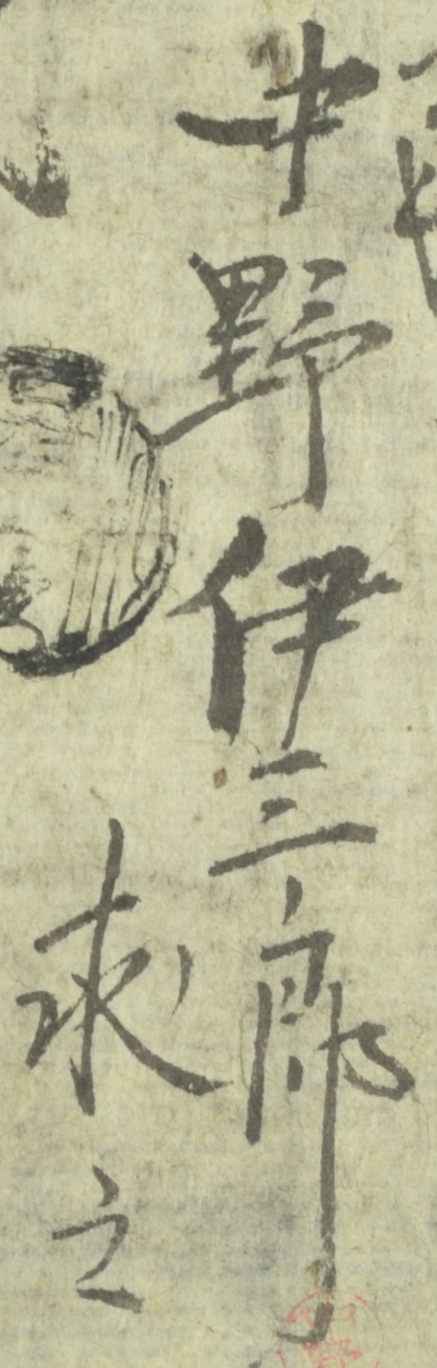 中野伊三郎
求之